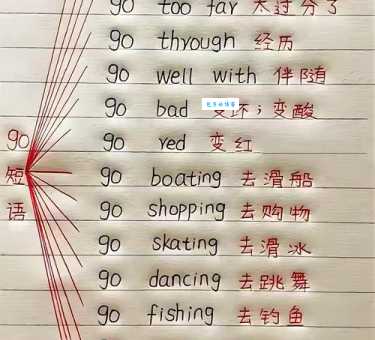 go too far 太过分了
go through 经历
go well with 伴随
go bad 变坏；变酸
go red 变红
go boating 去滑船
go shopping 去购物
go skating 去滑冰
go dancing 去跳舞
go fishing 去钓鱼
go
短
语